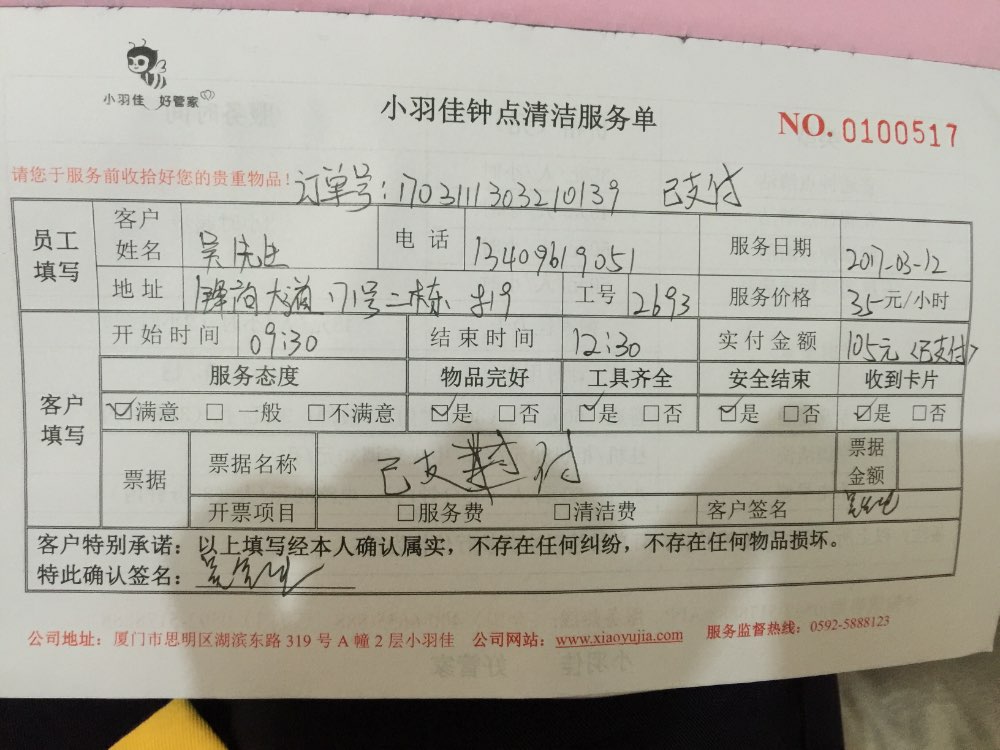 小羽佳 好管家
小羽佳钟点清洁服务单
NO. 0100517
请您于服务前收拾好您的贵重物品!
订单号:1703111303210139 已支付
员工填写 客户姓名 吴先生 电话 13409619051 服务日期 2017-03-12
地址 171号二栋 工号 2693 服务价格 35元/小时
客户填写 开始时间 09:30 结束时间 12:30 实付金额 105元<已支付>
服务态度 物品完好 工具齐全 安全结束 收到卡片
☑满意 □一般 □不满意 ☑是 □否 ☑是 □否 ☑是 □否 ☑是 □否
票据 票据名称 已支付 票据金额
开票项目 □服务费 □清洁费 客户签名
客户特别承诺:以上填写经本人确认属实,不存在任何纠纷,不存在任何物品损坏。
特此确认签名:
公司地址:厦门市思明区湖滨东路 319 号 A 幢 2 层小羽佳 公司网站:www.xiaoyujia.com 服务监督热线:0592-5888123